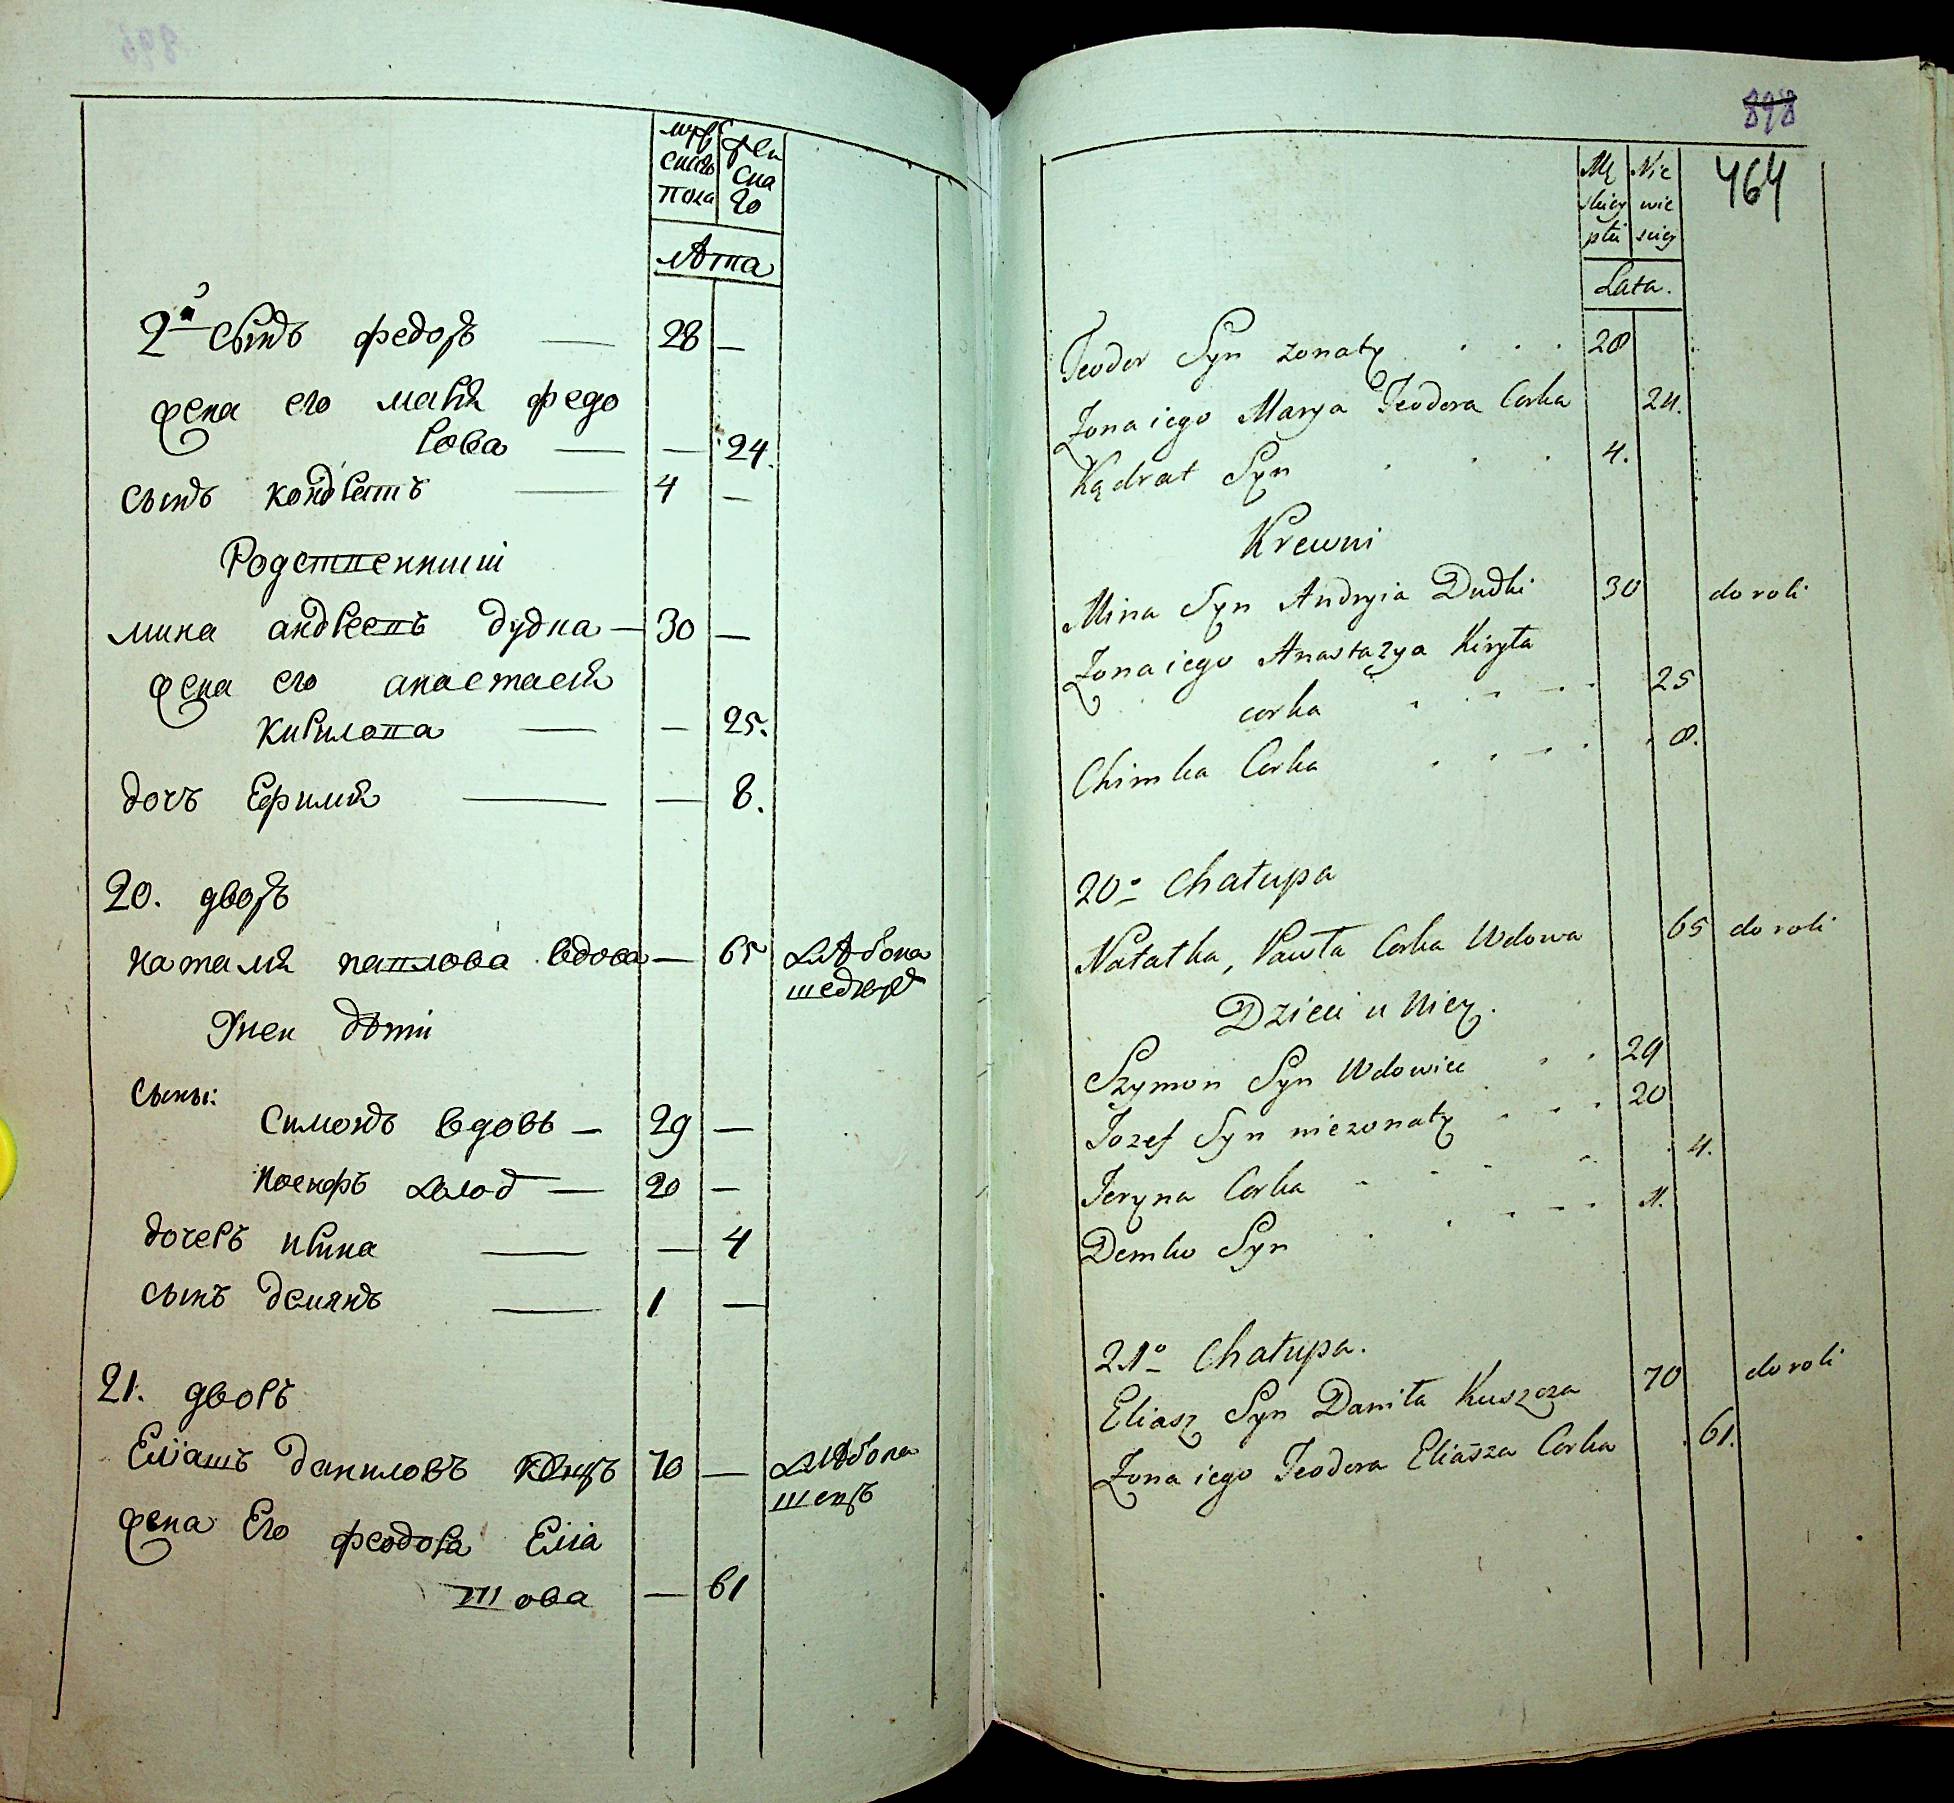 мужескаго пола
женскаго
лѣта
2й сынъ федоръ — 28 —
жена его мария федо
рова — — 24.
сынъ кондратъ — 4 —
Родственники
мина андреевъ дудка — 30 —
жена его анастасия
кирилова — — 25.
дочъ Ефимия — — 8.
20. дворъ
наталия павлова вдова — 65 хлѣбопа
Унеи дѣти
сыны:
Симонъ вдовъ — 29 —
иосифъ холост — 20 —
дочеръ ирина — — 4
сынъ демянъ — 1 —
21. дворъ
Еліашъ даниловъ 70 — хлѣбопа
шецъ
жена Его феодора Еліа
шова — 61
898
464
Mę skiey płci
Nie wie sciey
Lata.
Teodor Syn żonaty . . . 28
Żona iego Marya Teodora Corka 24.
Kądrat Syn . . . 4.
Krewni
Mina Syn Andryia Dudki 30 do roli
Żona iego Anastazya Kiryła
corka . . . 25
Chimka Corka . . . 8.
20o Chałupa
Natalka, Pawła Corka Wdowa 65 do roli
Dzieci u Niey.
Szymon Syn Wdowiec . . 29
Jozef Syn nieżonaty . . . 20
Jeryna Corka . . . 4.
Demko Syn . . . 1.
21o Chałupa.
Eliasz Syn Daniła Kuszcza 70 do roli
Żona iego Teodora Eliasza Corka . 61.